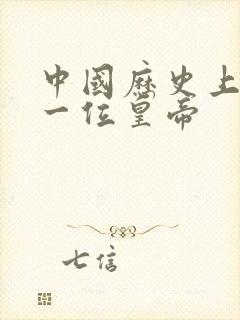 中國歷史上
一位皇帝
七信